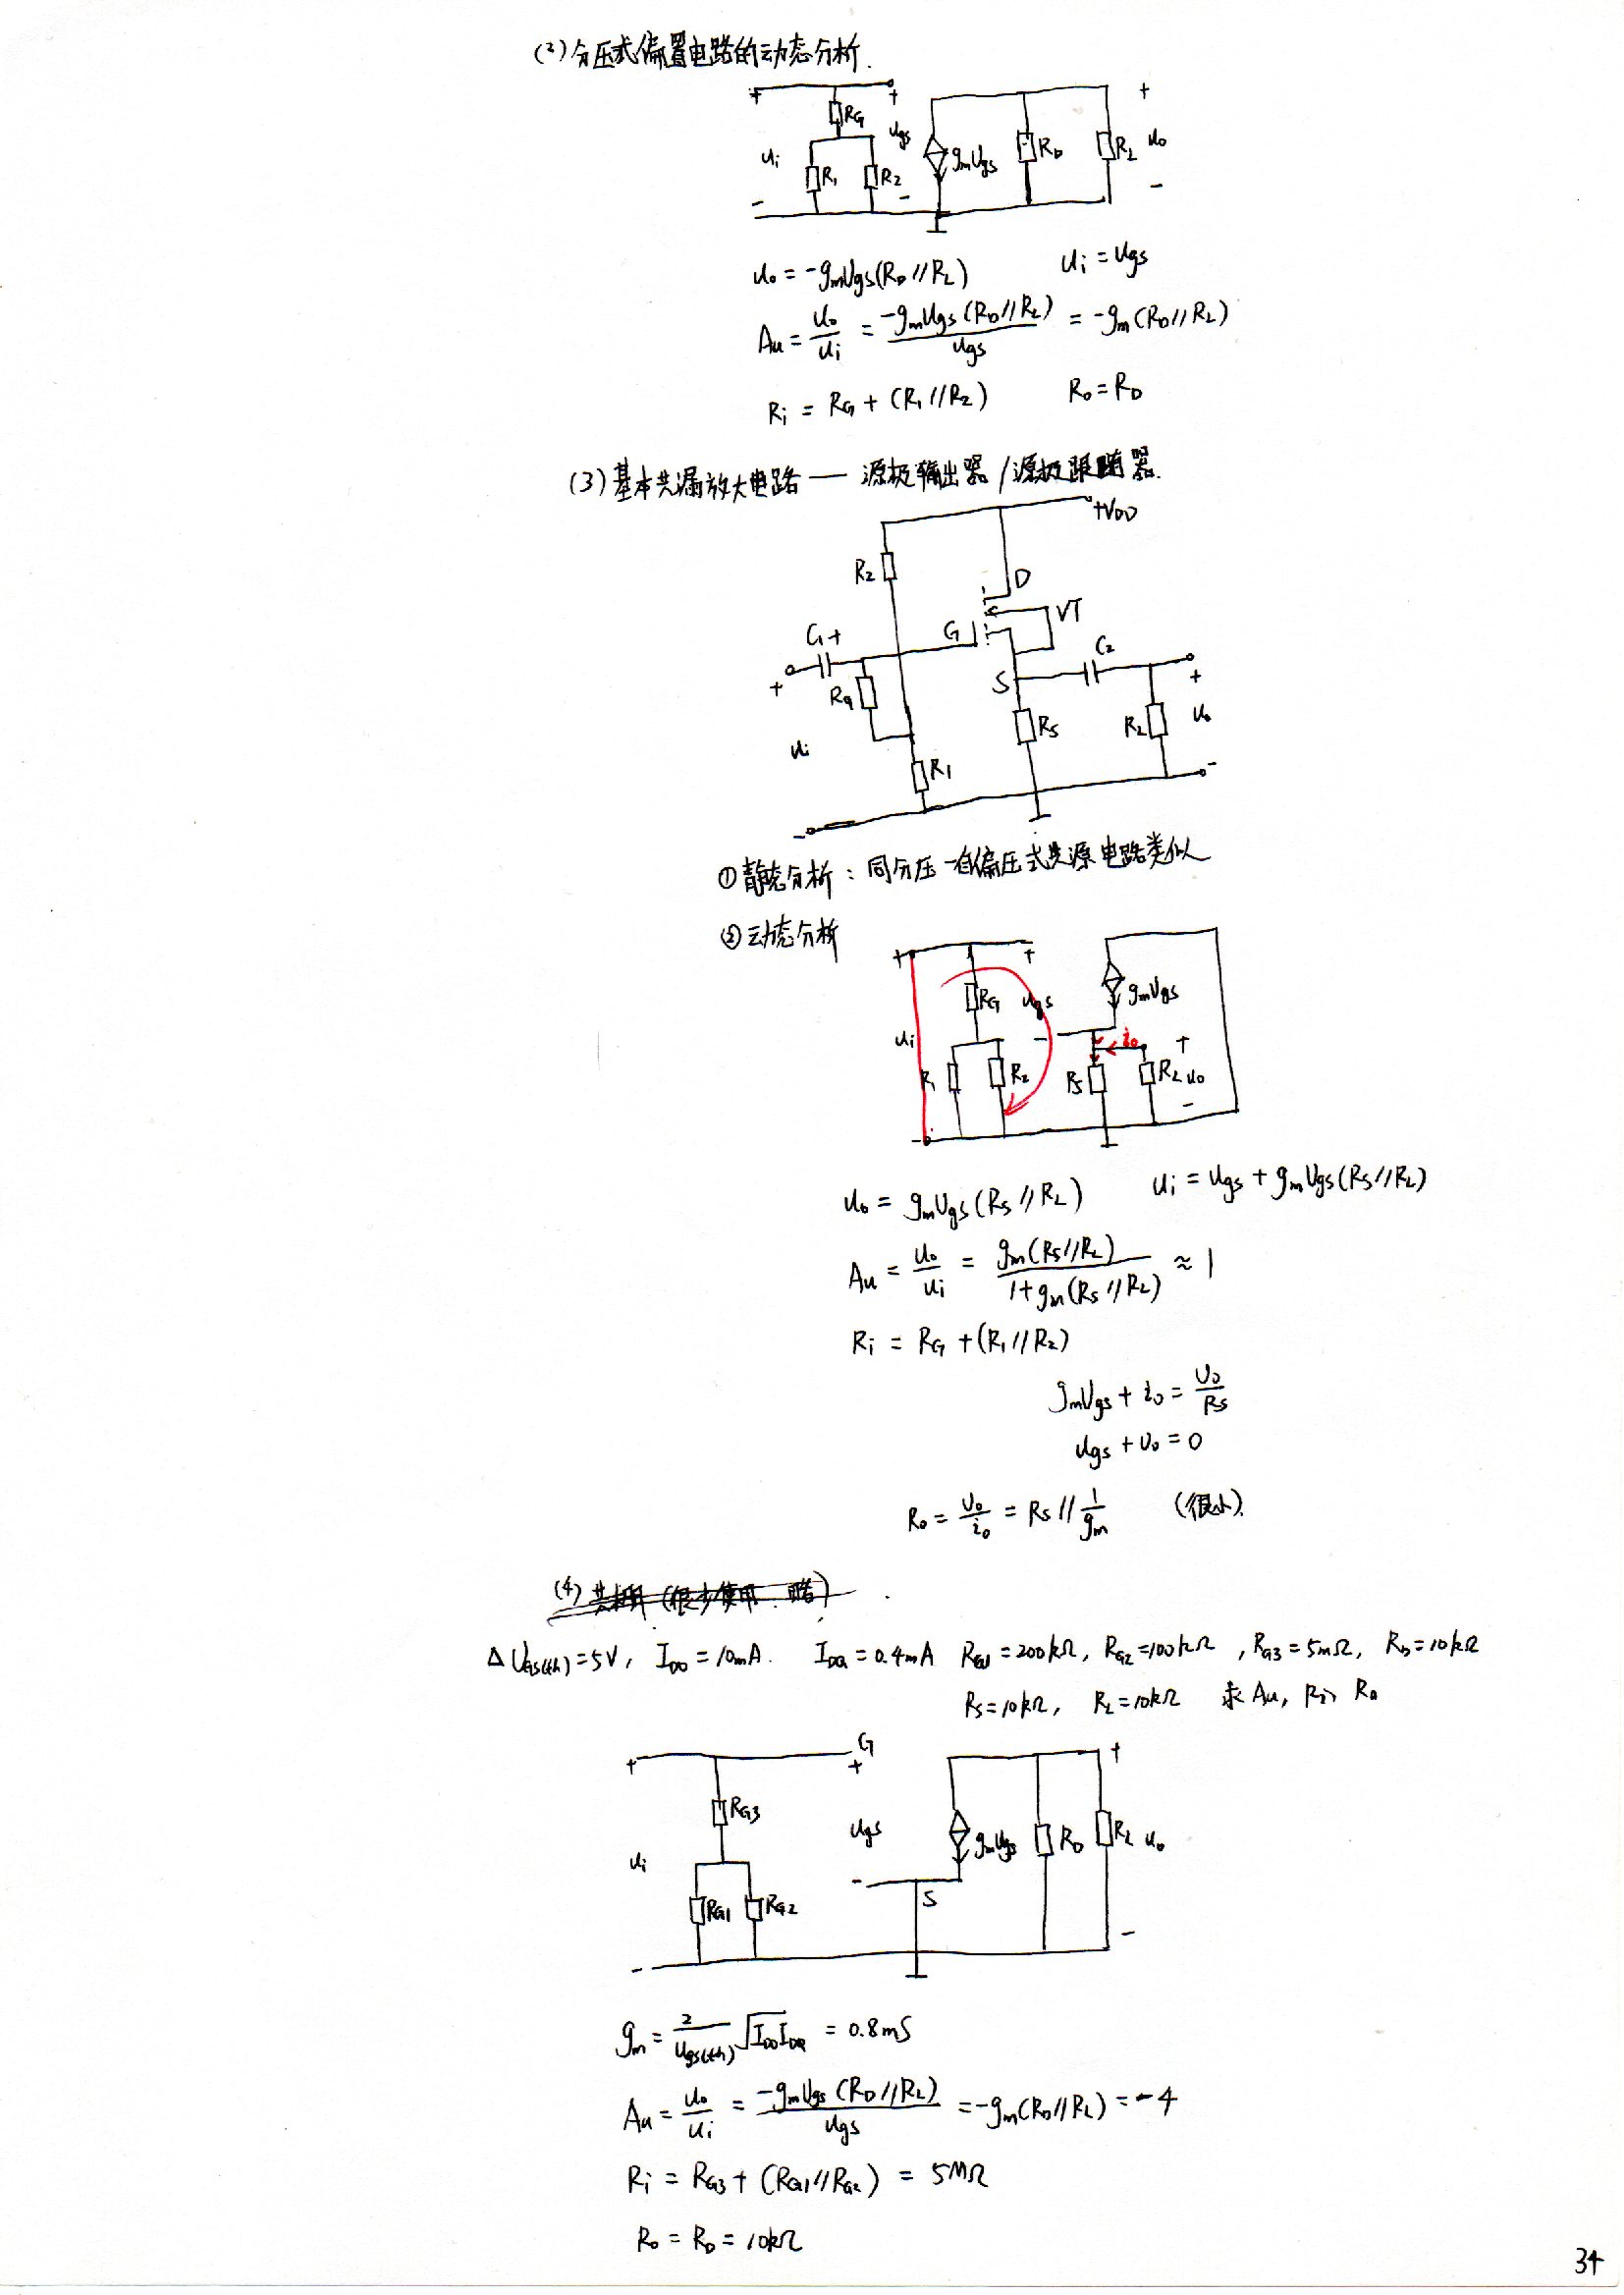 (2) 分压式偏置电路的动态分析.
+ + +
RG
Ui Ugs gmUgs RD RL Uo
R1 R2
- - -
Uo = -gmUgs(RD//RL) Ui = Ugs
Au = Uo/Ui = -gmUgs(RD//RL)/Ugs = -gm(RD//RL)
Ri = RG + (R1//R2) Ro = RD
(3) 基本共漏放大电路 — 源极输出器 / 源极跟随器.
+VDD
R2 D
VT
C1 + G C2
+ Rg S +
Ui RS RL Uo
R1 -
-
① 静态分析: 同分压-自偏压式共源电路类似
② 动态分析
+ +
RG Ugs gmUgs
Ui - io +
R1 R2 RS RL Uo
- -
Uo = gmUgs(RS//RL) Ui = Ugs + gmUgs(RS//RL)
Au = Uo/Ui = gm(RS//RL)/1+gm(RS//RL) ≈ 1
Ri = RG + (R1//R2)
gmUgs + io = Uo/RS
Ugs + Uo = 0
Ro = Uo/io = RS // 1/gm (很小).
(4) 共栅 (很少使用. 略)
Δ UGS(th) = 5V, IDO = 10mA. IDQ = 0.4mA RG1 = 200kΩ, RG2 = 100kΩ, RG3 = 5mΩ, RD = 10kΩ
RS = 10kΩ, RL = 10kΩ 求 Au, Ri, Ro
+ G + +
RG3
Ui Ugs gmUgs RD RL Uo
RG1 RG2 - S
- -
gm = 2/UGS(th) √IDOIDQ = 0.8mS
Au = Uo/Ui = -gmUgs(RD//RL)/Ugs = -gm(RD//RL) = -4
Ri = RG3 + (RG1//RG2) = 5MΩ
Ro = RD = 10kΩ
34